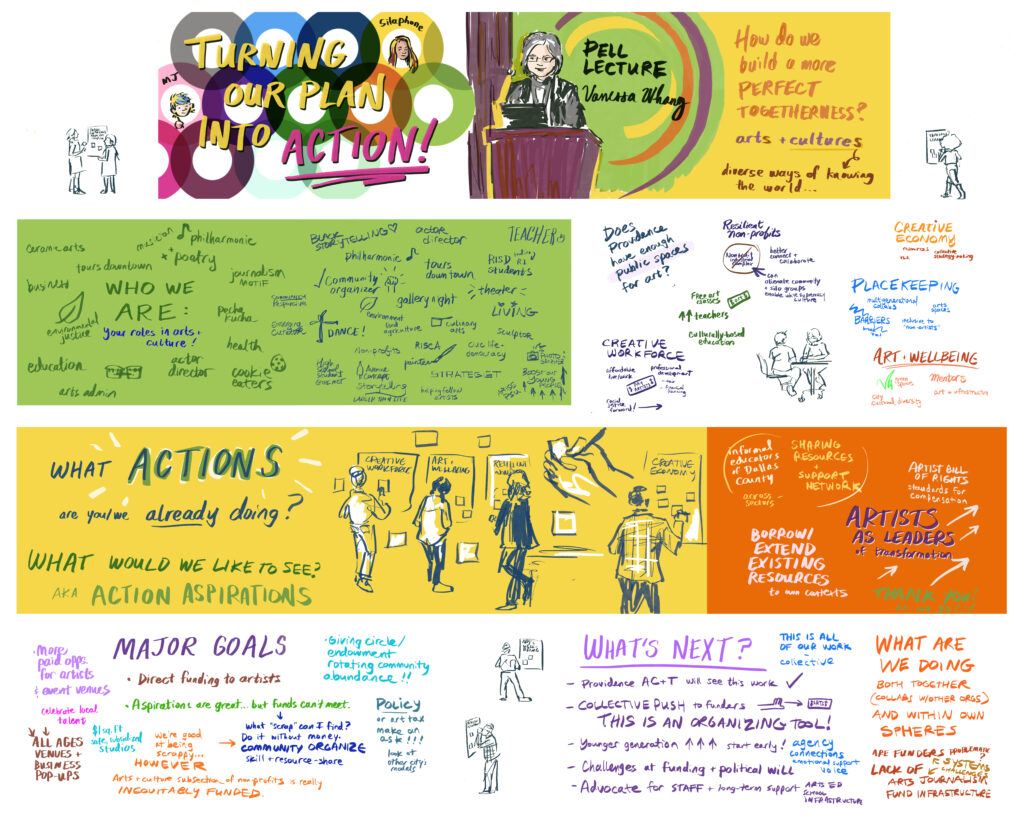 Silaphone
MJ
TURNING
OUR PLAN
INTO
ACTION!
PELL
LECTURE
Vanessa Whang
How do we
build a more
PERFECT
TOGETHERNESS?
arts + cultures
diverse ways of knowing
the world...
ceramic arts
musician
philharmonic
+ poetry
tours downtown
business
WHO WE
ARE:
Your roles in arts +
culture!
journalism
MOTIF
environmental
justice
pecha
kucha
health
education
actor
director
cookie
eaters
arts admin
BLACK
STORYTELLING
actor
director
TEACHER
philharmonic
tours
downtown
RISD
STUDENTS
community
organizer
gallery night
theater
LIVING
emerging
curator
DANCE!
environment
agriculture
culinary
arts
sculptor
non-profits
RISCA
civic life
democracy
painter
STRATEGIST
storytelling
Does
Providence
have enough
public spaces
for art?
Resilient
non-profits
better
connect +
collaborate
can
alienate community
+ silo groups
Free art
classes
teachers
culturally-based
education
CREATIVE
WORKFORCE
affordable
live/work
professional
development
racial
justice
forward!
CREATIVE
ECONOMY
resources
PLACEKEEPING
multigenerational
arts
spaces
BARRIERS
inclusive to
"non-artists"
ART + WELLBEING
green
spaces
mentors
city
cultural diversity
art + infrastructure
WHAT ACTIONS
are you/we already doing?
WHAT WOULD WE LIKE TO SEE?
AKA ACTION ASPIRATIONS
CREATIVE
WORKFORCE
ART +
WELLBEING
CREATIVE
ECONOMY
informal
educators
of Dallas
County
SHARING
RESOURCES
+
SUPPORT
NETWORK
across
sectors
ARTIST BILL
OF RIGHTS
standards for
compensation
ARTISTS
AS LEADERS
of transformation
BORROW/
EXTEND
EXISTING
RESOURCES
to own contexts
THANK YOU!
• More
paid opps.
for artists
+ event venues
celebrate local
talent
ALL AGES
VENUES +
BUSINESS
POP-UPS
$1sq.ft
safe, subsidized
studios
MAJOR GOALS
• Direct funding to artists
• Aspirations are great... but funds can't meet.
we're good
at being
scrappy...
HOWEVER
what "scrap" can I find?
Do it without money.
COMMUNITY ORGANIZE
skill + resource-share
Arts + culture subsection of nonprofits is really
INEQUITABLY FUNDED.
• Giving circle/
endowment
rotating community
abundance!!
Policy
or art tax
make an
ask!!!
look at
other city's
models
WHAT'S NEXT?
– Providence AC+T will see this work ✓
– COLLECTIVE PUSH to funders
THIS IS AN ORGANIZING TOOL!
– Younger generation ↑↑↑ start early!
agency
connections
emotional support
voice
– Challenges at funding + political will
– Advocate for STAFF + long-term support
ARTS ED
SCHOOL
INFRASTRUCTURE
THIS IS ALL
OF OUR WORK
–
collective
WHAT ARE
WE DOING
BOTH TOGETHER
(COLLABS W/OTHER ORGS)
AND WITHIN OWN
SPHERES
ARE FUNDERS PROBLEMATIC?
SYSTEMS
CHALLENGES
LACK OF
ARTS JOURNALISM
FUND INFRASTRUCTURE